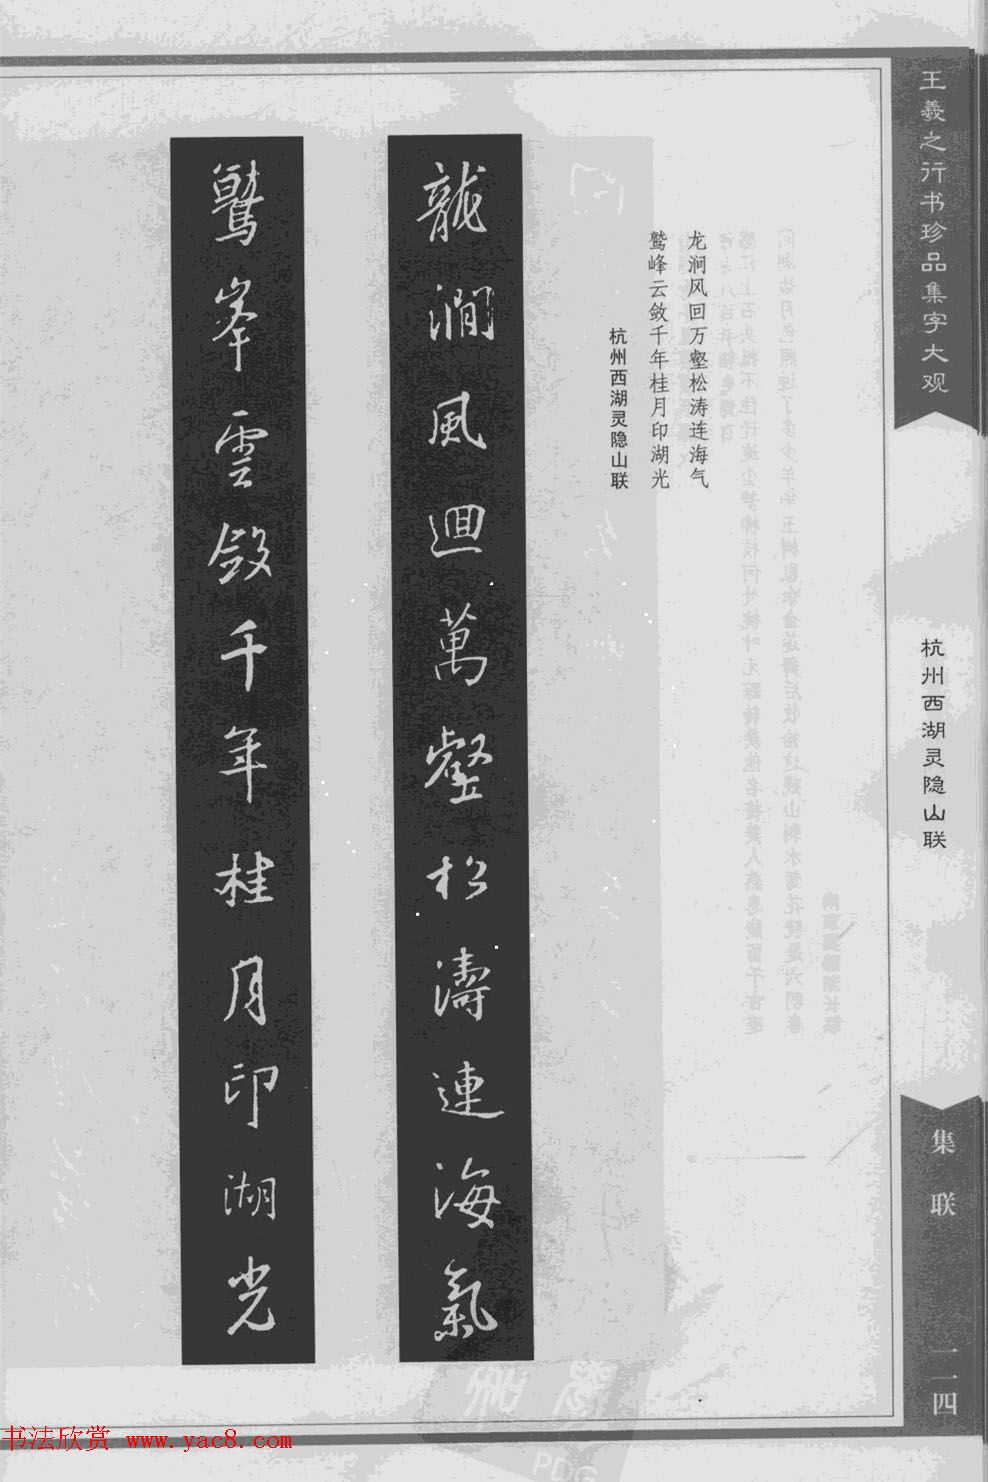 王羲之行书珍品集字大观
杭州西湖灵隐山联
集联
一二四
龙涧风回万壑松涛连海气
鹫峰云敛千年桂月印湖光
杭州西湖灵隐山联
龍澗風迴萬壑松濤連海氣
鷲峯雲斂千年桂月印湖光
书法欣赏 www.yac8.com
PDG